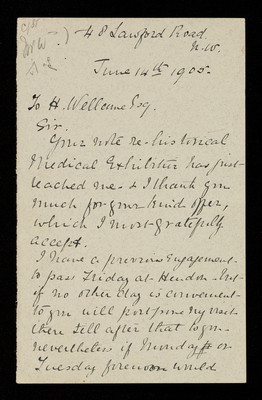 48 Lawford Road.
N.W.
June 14th 1905.
To H. Wellcome Esq.
Sir.
Your note re- historical
Medical Exhibition has just
reached me- & I thank you
much for your kind offer,
which I most gratefully
accept.
I have a previous engagement
to pass Friday at Hendon- but
if no other day is convenient
to you will postpone my visit
there till after that to you-
nevertheless if Monday or
Tuesday forenoon would